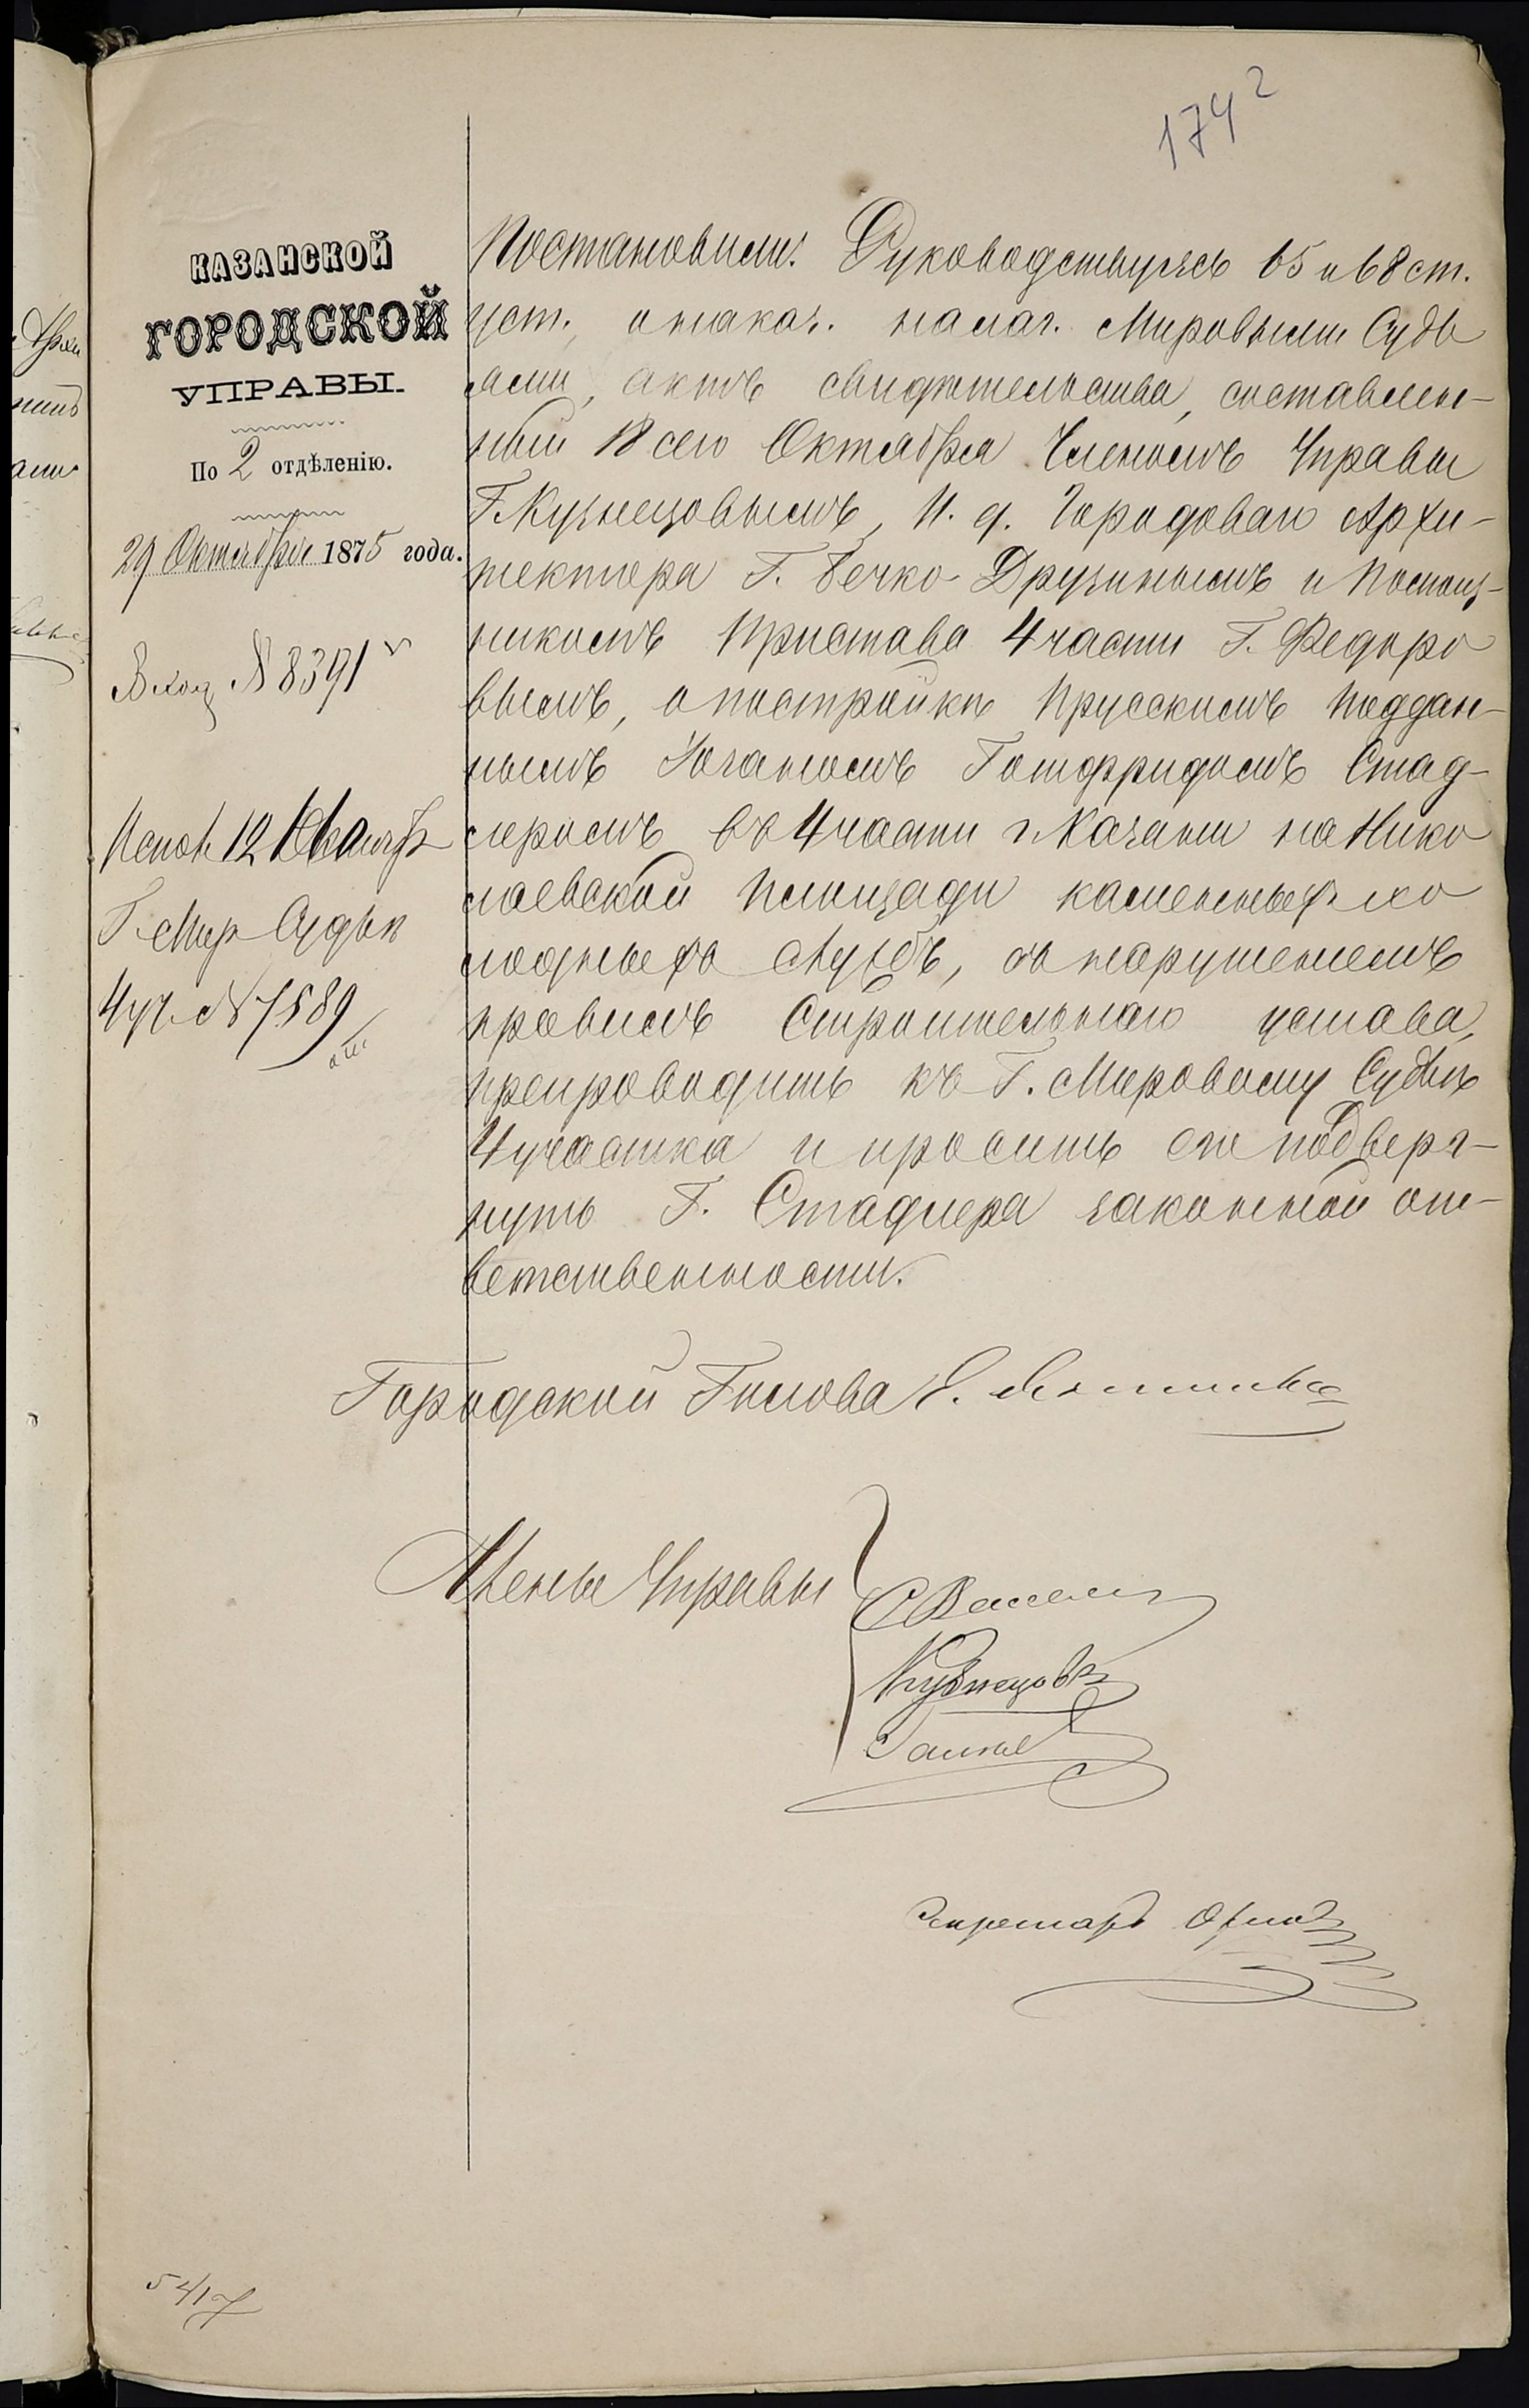 174 2
КАЗАНСКОЙ
ГОРОДСКОЙ
УПРАВЫ.
По 2 отдѣленію.
29 Октября 1875 года.
Вход № 8391
Г. Мир Судьѣ
4 уч. № 7589
Постановили: Руководствуясь 65 и 68 ст.
уст. о наказ. налаг. Мировыми Судь
ями, актъ свидѣтельства, составлен-
ный 18 сего Октября Членомъ Управы
Г. Кузнецовымъ, И. д. Городоваго Архи-
тектора Г. Бечко-Друзинымъ и Помощ-
никомъ Пристава 4 части Г. Федоро
вымъ, о постройкѣ Прусскимъ Поддан-
нымъ Іоганомъ Готфридомъ Стад-
леромъ въ 4 части г. Казани на Нико
лаевской Площади каменныхъ хо
лодныхъ службъ, съ нарушеніемъ
правилъ Строительнаго устава,
препроводить къ Г. Мировому Судьѣ
4 участка и просить его подверг-
нуть Г. Стадлера законной от-
вѣтственности.
Городской Голова Е.
Члены Управы
Кузнецовъ
Секретарь